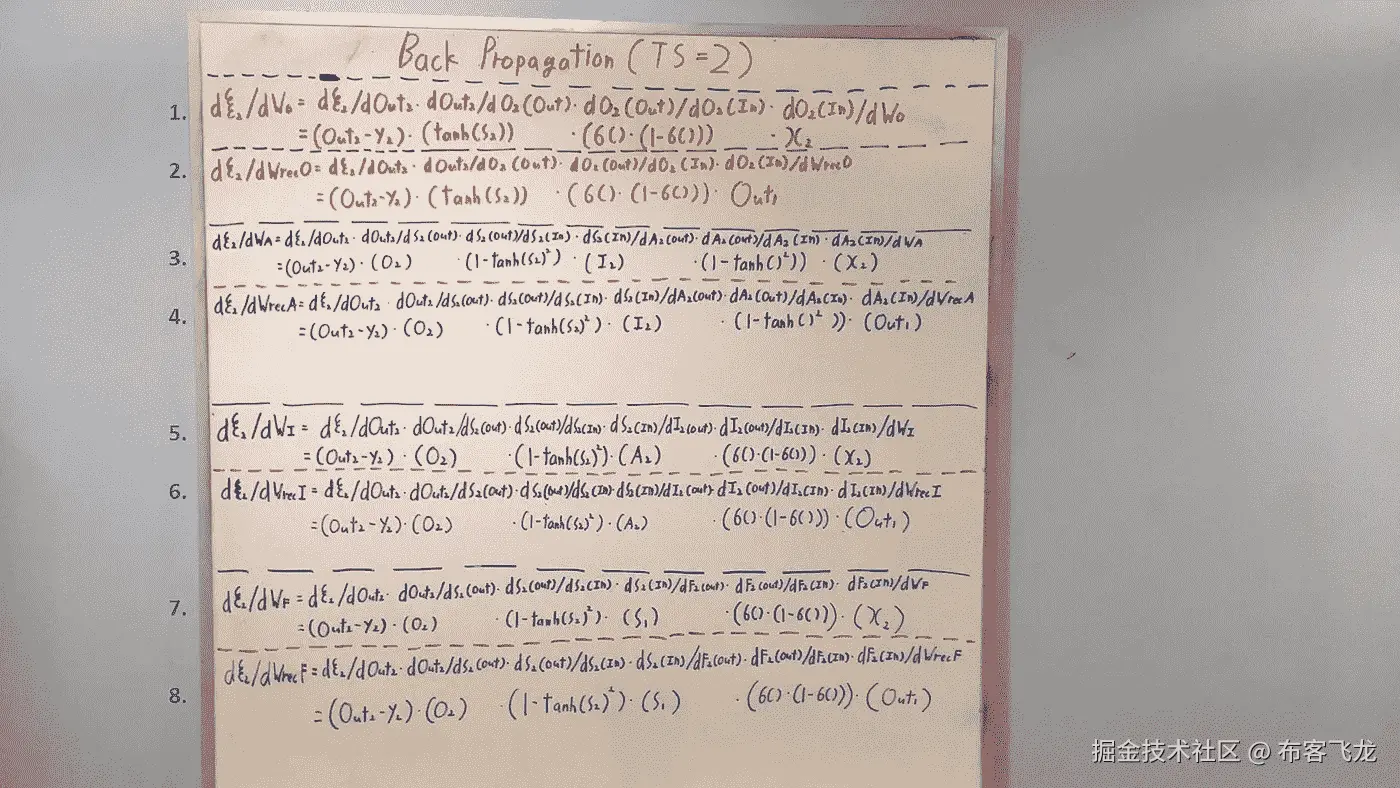 Back Propagation (TS=2)
1. dξ₂/dWo = dξ₂/dOut₂ · dOut₂/dO₂(Out) · dO₂(Out)/dO₂(In) · dO₂(In)/dWo
=(Out₂-Y₂) · (tanh(S₂)) · (6() · (1-6())) · X₂
2. dξ₂/dWrecO = dξ₂/dOut₂ · dOut₂/dO₂(Out) · dO₂(Out)/dO₂(In) · dO₂(In)/dWrecO
=(Out₂-Y₂) · (tanh(S₂)) · (6() · (1-6())) · Out₁
3. dξ₂/dWA = dξ₂/dOut₂ · dOut₂/dS₂(Out) · dS₂(Out)/dS₂(In) · dS₂(In)/dA₂(Out) · dA₂(Out)/dA₂(In) · dA₂(In)/dWA
=(Out₂-Y₂) · (O₂) · (1-tanh(S₂)²) · (I₂) · (1-tanh()²)) · (X₂)
4. dξ₂/dWrecA = dξ₂/dOut₂ · dOut₂/dS₂(Out) · dS₂(Out)/dS₂(In) · dS₂(In)/dA₂(Out) · dA₂(Out)/dA₂(In) · dA₂(In)/dWrecA
=(Out₂-Y₂) · (O₂) · (1-tanh(S₂)²) · (I₂) · (1-tanh()²)) · (Out₁)
5. dξ₂/dWI = dξ₂/dOut₂ · dOut₂/dS₂(Out) · dS₂(Out)/dS₂(In) · dS₂(In)/dI₂(Out) · dI₂(Out)/dI₂(In) · dI₂(In)/dWI
=(Out₂-Y₂) · (O₂) · (1-tanh(S₂)²) · (A₂) · (6() · (1-6())) · (X₂)
6. dξ₂/dWrecI = dξ₂/dOut₂ · dOut₂/dS₂(Out) · dS₂(Out)/dS₂(In) · dS₂(In)/dI₂(Out) · dI₂(Out)/dI₂(In) · dI₂(In)/dWrecI
=(Out₂-Y₂) · (O₂) · (1-tanh(S₂)²) · (A₂) · (6() · (1-6())) · (Out₁)
7. dξ₂/dWF = dξ₂/dOut₂ · dOut₂/dS₂(Out) · dS₂(Out)/dS₂(In) · dS₂(In)/dF₂(Out) · dF₂(Out)/dF₂(In) · dF₂(In)/dWF
=(Out₂-Y₂) · (O₂) · (1-tanh(S₂)²) · (S₁) · (6() · (1-6())) · (X₂)
8. dξ₂/dWrecF = dξ₂/dOut₂ · dOut₂/dS₂(Out) · dS₂(Out)/dS₂(In) · dS₂(In)/dF₂(Out) · dF₂(Out)/dF₂(In) · dF₂(In)/dWrecF
=(Out₂-Y₂) · (O₂) · (1-tanh(S₂)²) · (S₁) · (6() · (1-6())) · (Out₁)
掘金技术社区 @ 布客飞龙